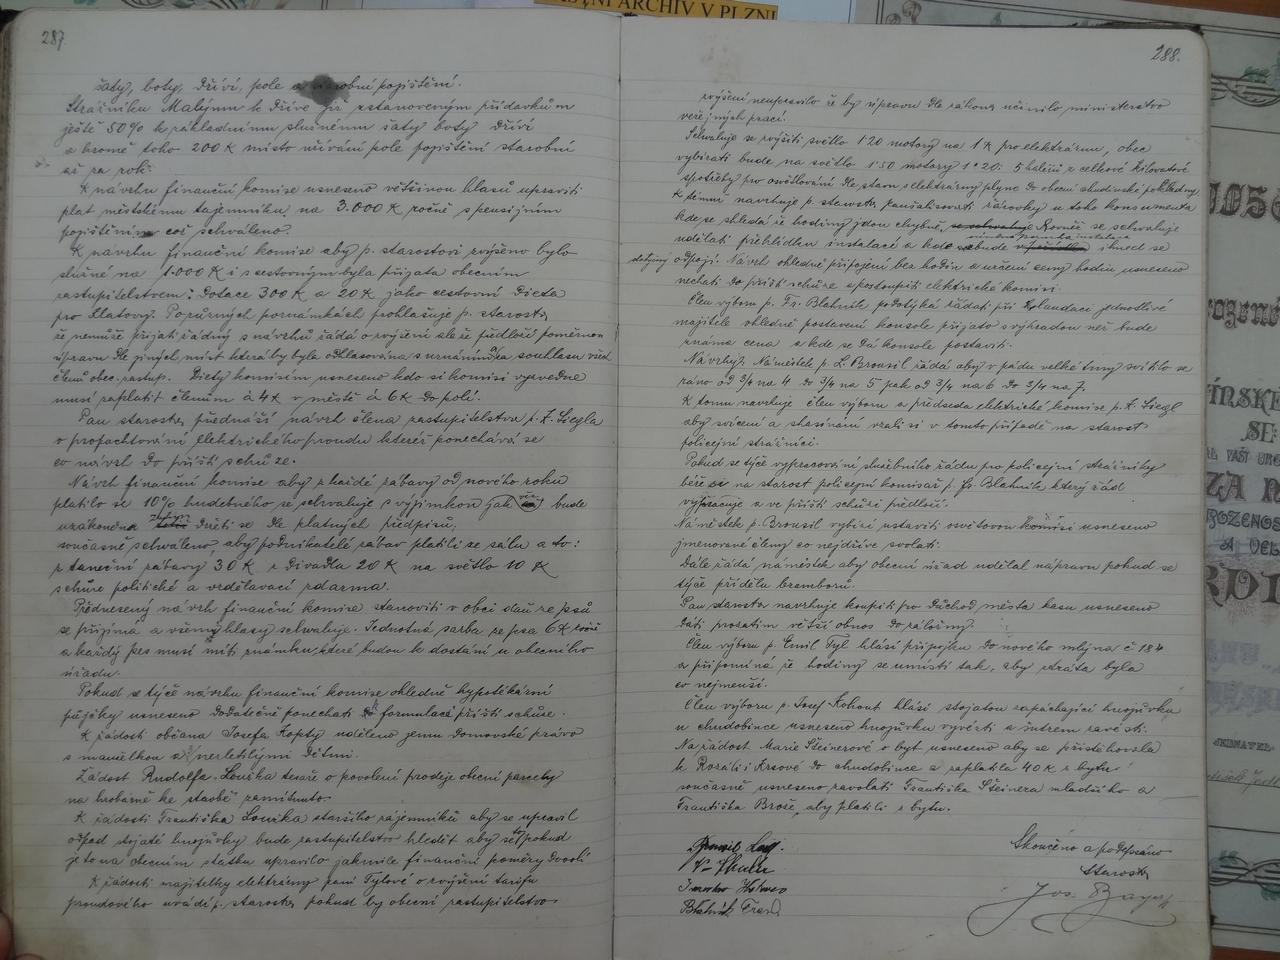 287.
šaty, boty, dříví, pole a starobní pojištění.
Strážníku Malýmu k dříve již ustanoveným přídavkům
ještě 50% k základnímu služnému šaty boty dříví
a kromě toho 200 K místo užívání pole pojištění starobní
až za rok.
K návrhu finanční komise usneseno většinou hlasů upraviti
plat městskému tajemníku na 3.000 K ročně s pensijním
pojištěním což schváleno.
K návrhu finanční komise aby p. starostovi zvýšeno bylo
služné na 1.000 K i s cestovným byla přijata obecním
zastupitelstvem: Dotace 300 K a 20 K jako cestovní dieta
pro Klatovy. Po různých poznámkách prohlašuje p. starosta
že nemůže přijati žádný z návrhů žádá o zvýšení
úpravu dle jiných míst která by byla odhlasována s uznáním za souhlasu všech
členů obec. zastup. Diety komisím usneseno kdo si komisi vyzvedne
musí zaplatit členům á 4 K v městě á 6 K do polí.
Pan starosta přednáší návrh člena zastupitelstva p. K. Siegla
o propachtování elektrického proudu kteréž ponechává se
co návrh do příští schůze.
Návrh finanční komise aby z každé zábavy od nového roku
platilo se 10% hudebného se schvaluje s výjimkou jak bude
uzákoněna dněti se dle platných předpisů,
současně schváleno, aby podnikatelé zábav platili ze sálu a to:
z taneční zábavy 30 K z Divadla 20 K na světlo 10 K
schůze politické a vzdělávací zdarma.
Přednesený návrh finanční komise stanoviti v obci daň ze psů
se přijímá a všemi hlasy schvaluje. Jednotná sazba ze psa 6 K ročně
a každý pes musí míti známku, které budou k dostání u obecního
úřadu.
Pokud se týče návrhu finanční komise ohledně hypotékární
půjčky usneseno dodatečně ponechati formulaci příští schůze.
K žádosti občana Josefa Kopty uděleno jemu domovské právo
s manželkou a 3 nezletilými dětmi.
Žádost Rudolfa Louška tesaře o povolení prodeje obecní parcely
na hrobárně ke stavbě zamítnuto.
K žádosti Františka Louska staršího zájemníků aby se upravil
odpad stojaté hnojůvky bude zastupitelstvo hleděti aby se to pokud
je to na obecním statku upravilo jakmile finanční poměry dovolí
K žádosti majitelky elektrárny paní Tylové o zvýšení tarifu
proudového uvádí p. starosta, pokud by obecní zastupitelstvo
288.
zvýšení neupravilo že by úpravu dle zákona učinilo ministerstvo
veřejných prací.
Schvaluje se zvýšiti světlo 1·20 motory na 1 K pro elektrárnu, obec
vybírati bude na světlo 1·50 motory 1·20: 5 haléřů z celkové kilovatové
spotřeby pro osvětlování dle stavu z elektrárny plyne do obecní chudinské pokladny.
K témuž navrhuje p. starosta paušalisovati žárovky u toho konsumenta
kde se shledá že hodiny jdou chybně, Rovněž se schvaluje
udělati přehlídku instalace a kde nebude ihned se
odpojí. Návrh ohledně připojení bez hodin a určení ceny hodin usneseno
nechati do příští schůze a postoupiti elektrické komisi.
Člen výboru p. Fr. Blahník podotýká žádati při kolaudaci jednotlivé
majitele ohledně postavení konsole přijato s výhradou než bude
známa cena a kde se dá konsole postaviti.
Návrhy: Náměstek p. L. Brousil žádá aby v pádu velké tmy svítilo se
ráno od 3/4 na 4 do 3/4 na 5 pak od 3/4 na 6 do 3/4 na 7.
K tomu navrhuje člen výboru a předseda elektrické komise p. K. Siegl
aby svícení a zhasínání vzali si v tomto případě na starost
policejní strážníci.
Pokud se týče vypracování služebního řádu pro policejní strážníky
béře si na starost policejní komisař p. Fr. Blahník který řád
vypracuje a ve příští schůzi předloží.
Náměstek p. Brousil vybízí ustaviti osvětovou komisi usneseno
jmenované členy co nejdříve svolati.
Dále žádá náměstek aby obecní úřad udělal nápravu pokud se
týče přídělu bramborů.
Pan starosta navrhuje koupiti pro důchod města kasu usneseno
dáti prozatím větší obnos do záložny.
Člen výboru p. Emil Tyl hlásí přípojku do nového mlýna č 184
a připomíná že hodiny se umístí tak, aby ztráta byla
co nejmenší.
Člen výboru p. Josef Kohout hlásí stojatou zapáchající hnojůvku
u chudobince usneseno hnojůvku vyvézti a šutrem zavézti.
Na žádost Marie Steinerové o byt usneseno aby se přistěhovala
k Rozálii Krsové do chudobince a zaplatila 40 K z bytu
současně usneseno zavolati Františka Šteinera mladšího a
Františka Brože, aby platili z bytu.
Skončeno a podepsáno
Starosta
Jos. Bayer
Blahník Frant.